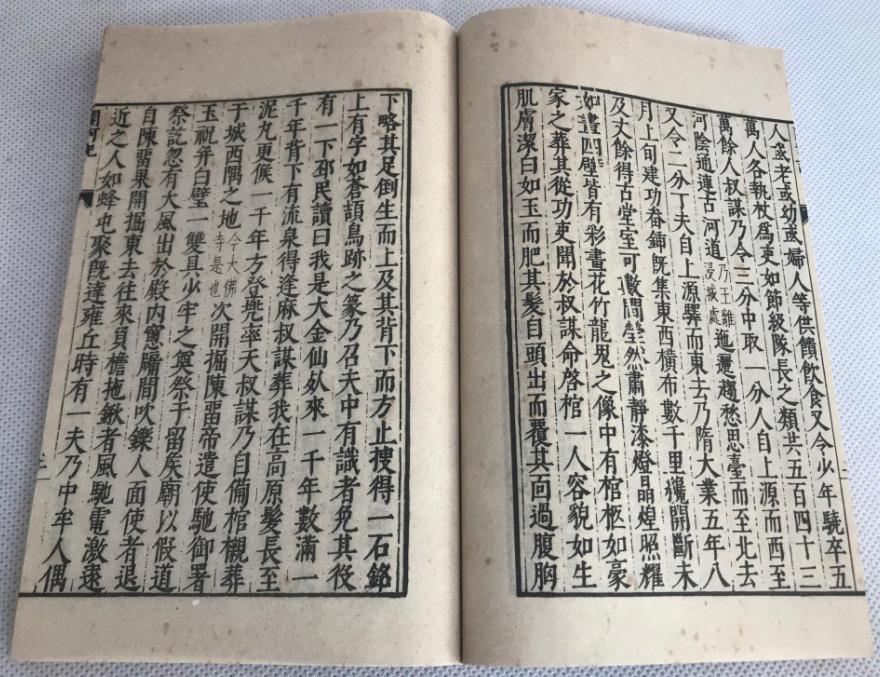 人或老或幼或婦人等供饋飲食又令少年驍卒五
萬人各執杖爲吏如節級隊長之類共五百四十三
萬餘人叔謀乃令三分中取一分人自上源而西至
河陰通連古河道乃王離浸城處迤邐趨愁思臺而至北去
又令二分丁夫自上源驛而東去乃隋大業五年八
月上旬建功畚鍤旣集東西橫布數千里纔開斷未
及丈餘得古堂室可數間瑩然肅靜漆燈晶煌照耀
如晝四壁皆有彩畫花竹龍鬼之像中有棺柩如豪
家之葬其從功吏聞於叔謀命啓棺一人容貌如生
肌膚潔白如玉而肥其髮自頭出而覆其面過腹胸
下略其足倒生而上及其背下而方止搜得一石銘
上有字如蒼頡鳥跡之篆乃召夫中有識者免其役
有一下邳民讀曰我是大金仙死來一千年數滿一
千年背下有流泉得逢麻叔謀葬我在高原髮長至
泥丸更候一千年方登兜率天叔謀乃自備棺櫬葬
于城西隅之地今大佛寺是也次開掘陳留帝遣使馳御署
玉祝并白璧一雙具少牢之奠祭于留侯廟以假道
祭訖忽有大風出於殿內窻牖間吹鑠人面使者退
自陳留果開掘東去往來負檐拖鍬者風馳電激遠
近之人如蜂屯聚旣達雍丘時有一夫乃中牟人偶
開河記